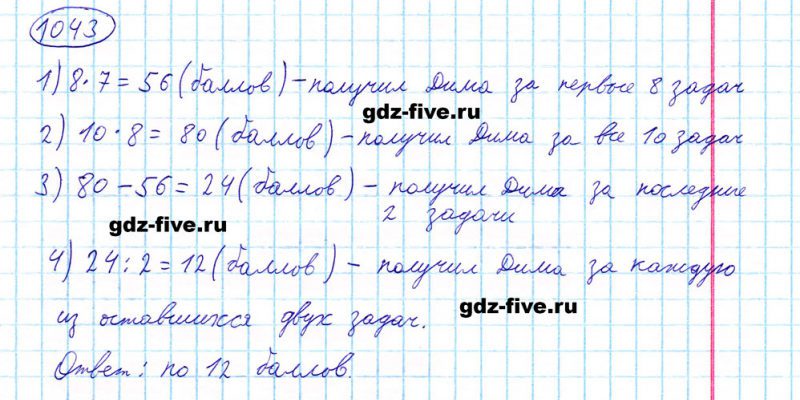 1043
1) 8 · 7 = 56 (баллов) – получил Дима за первые 8 задач
gdz-five.ru
2) 10 · 8 = 80 (баллов) – получил Дима за все 10 задач
3) 80 – 56 = 24 (баллов) – получил Дима за последние
2 задачи
gdz-five.ru
4) 24 : 2 = 12 (баллов) – получил Дима за каждую
gdz-five.ru
из оставшихся двух задач.
Ответ: по 12 баллов.